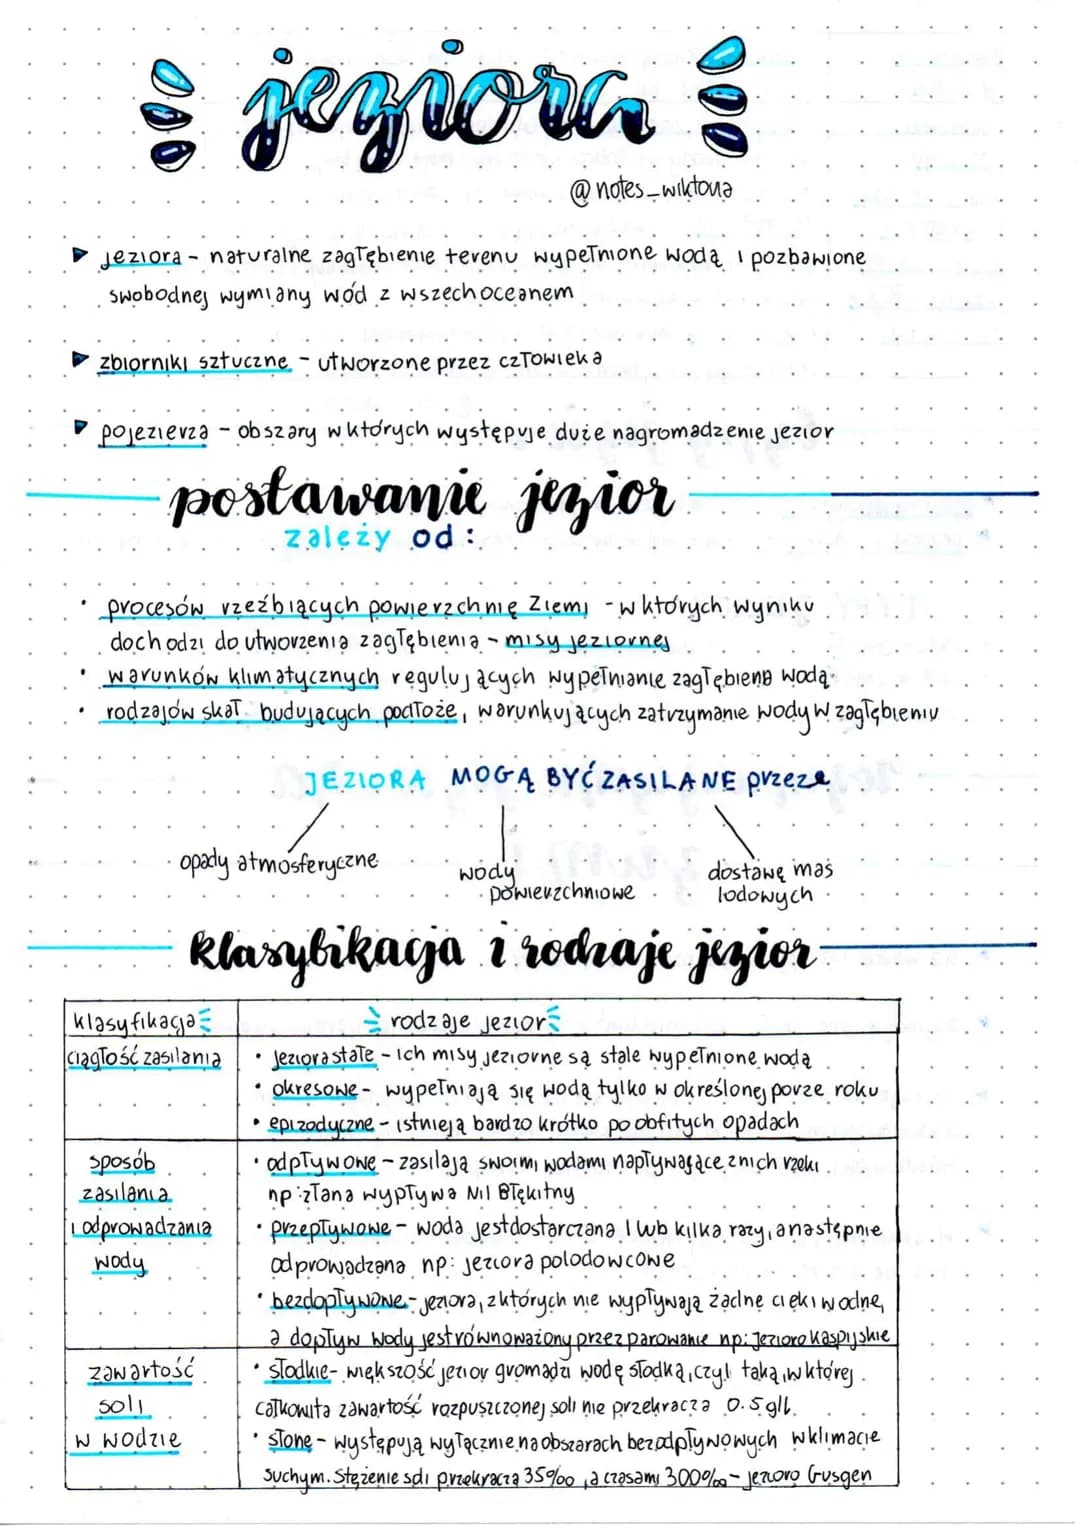 jeziora
@notes_wiktoria
jeziora - naturalne zagłębienie terenu wypełnione wodą i pozbawione
swobodnej wymiany wód z wszechoceanem
zbiorniki sztuczne - utworzone przez człowieka
pojezierza - obszary w których występuje duże nagromadzenie jezior
postawanie jezior
zależy od:
• procesów rzeźbiących powierzchnię Ziemi - w których wyniku
dochodzi do utworzenia zagłębienia - misy jeziornej
• warunków klimatycznych regulujących wypełnianie zagłębiena wodą
• rodzajów skał budujących podłoże, warunkujących zatrzymanie wody w zagłębieniu
JEZIORA MOGĄ BYĆ ZASILANE przeze
opady atmosferyczne
wody powierzchniowe
dostawę mas lodowych
klasyfikacja i rodzaje jezior
klasyfikacja rodzaje jezior
ciągłość zasilania
• jeziora stałe - ich misy jeziorne są stale wypełnione wodą
• okresowe - wypełniają się wodą tylko w określonej porze roku
• epizodyczne - istnieją bardzo krótko po obfitych opadach
sposób
zasilania
i odprowadzania
wody
• odpływowe - zasilają swoimi wodami napływające z nich rzeki
np: z Tana wypływa Nil Błękitny
• przepływowe - woda jest dostarczana 1 lub kilka razy, a następnie
odprowadzana np: jeziora polodowcowe
• bezdopływowe - jeziora, z których nie wypływają żadne cieki wodne,
a dopływ wody jest równoważony przez parowanie np: Jezioro Kaspijskie
zawartość
soli
w wodzie
• słodkie - większość jezior gromadzi wodę słodką, czyli taką, w której
całkowita zawartość rozpuszczonej soli nie przekracza 0.5 g/l.
• słone - występują wyłącznie na obszarach bezodpływowych w klimacie
suchym. Stężenie soli przekracza 35‰, a czasami 300‰ - jezioro Gusgen